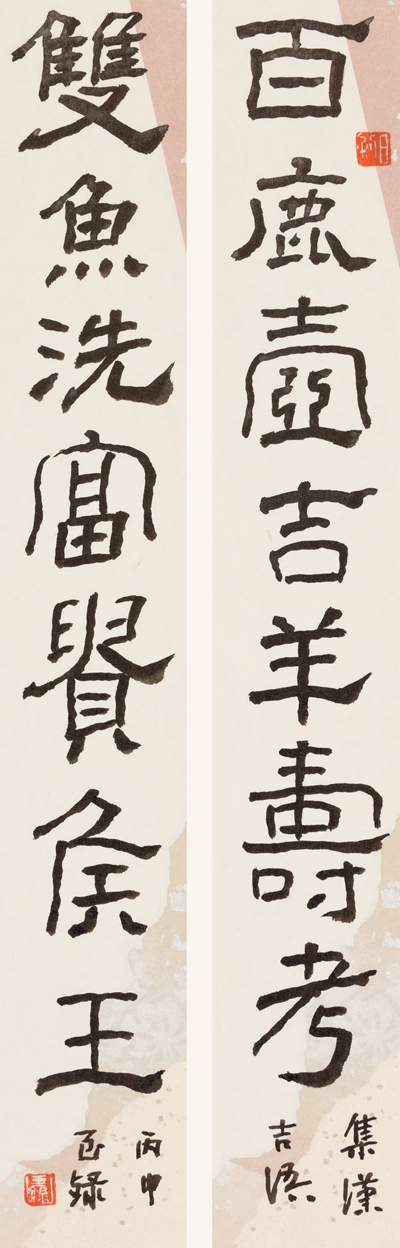 百鹿壺吉羊壽考
集漢
吉語
雙魚洗富貴侯王
丙申
錄